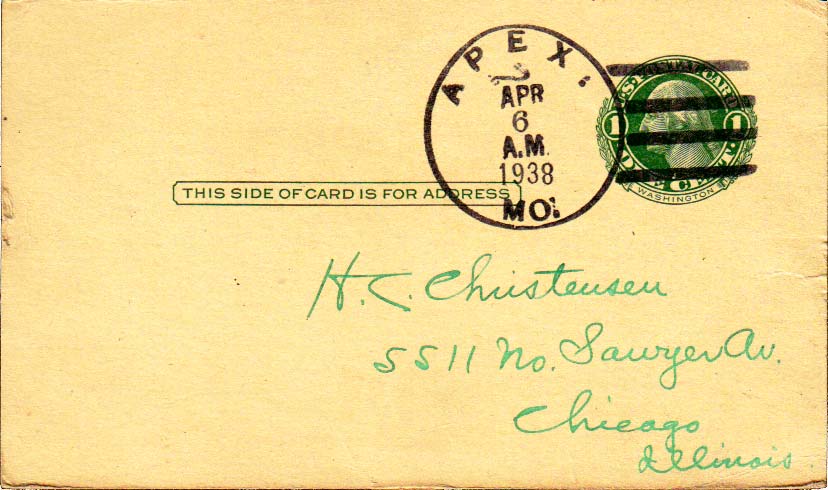 APEX.
APR
6
A.M.
1938
MO.
U.S. POSTAL CARD
1 1
ONE CENT.
WASHINGTON
THIS SIDE OF CARD IS FOR ADDRESS
H. C. Christensen
5511 No. Sawyer Av.
Chicago
Illinois.